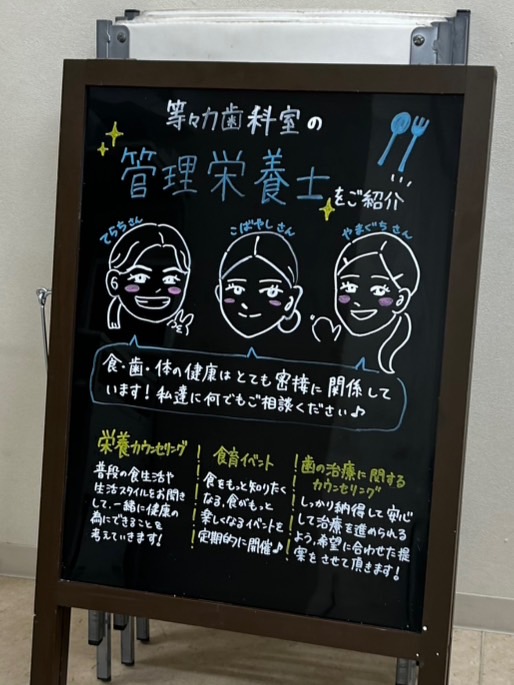 等々力歯科室の
管理栄養士をご紹介
てらちさん
こばやしさん
やまぐちさん
食・歯・体の健康はとても密接に関係して
います！私達に何でもご相談ください♪
栄養カウンセリング
普段の食生活や
生活スタイルをお聞き
して、一緒に健康の
為にできることを
考えていきます！
食育イベント
食をもっと知りたく
なる、食がもっと
楽しくなるイベントを
定期的に開催♪
歯の治療に関する
カウンセリング
しっかり納得して安心
して治療を進められる
よう、希望に合わせた提
案をさせて頂きます！